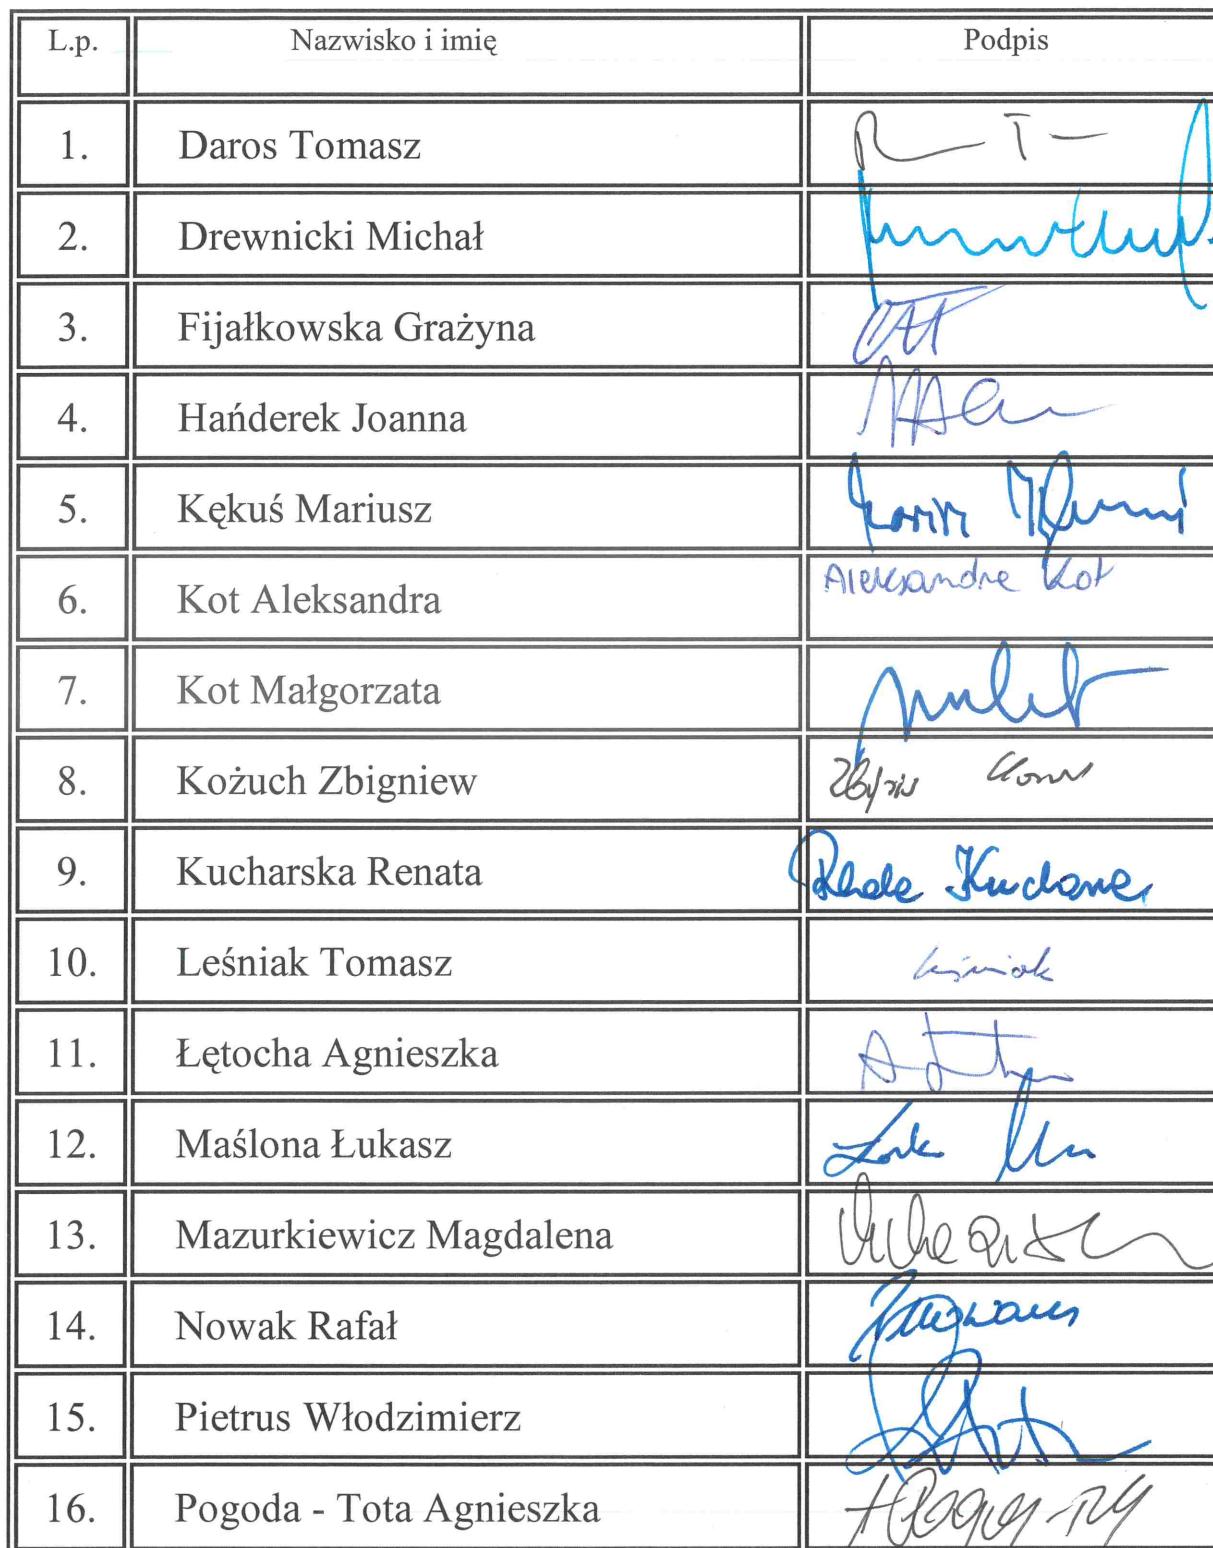 L.p. Nazwisko i imię Podpis
1. Daros Tomasz
2. Drewnicki Michał
3. Fijałkowska Grażyna
4. Hańderek Joanna
5. Kękuś Mariusz
6. Kot Aleksandra Aleksandra Kot
7. Kot Małgorzata
8. Kożuch Zbigniew
9. Kucharska Renata
10. Leśniak Tomasz Leśniak
11. Łętocha Agnieszka
12. Maślona Łukasz
13. Mazurkiewicz Magdalena
14. Nowak Rafał
15. Pietrus Włodzimierz
16. Pogoda - Tota Agnieszka